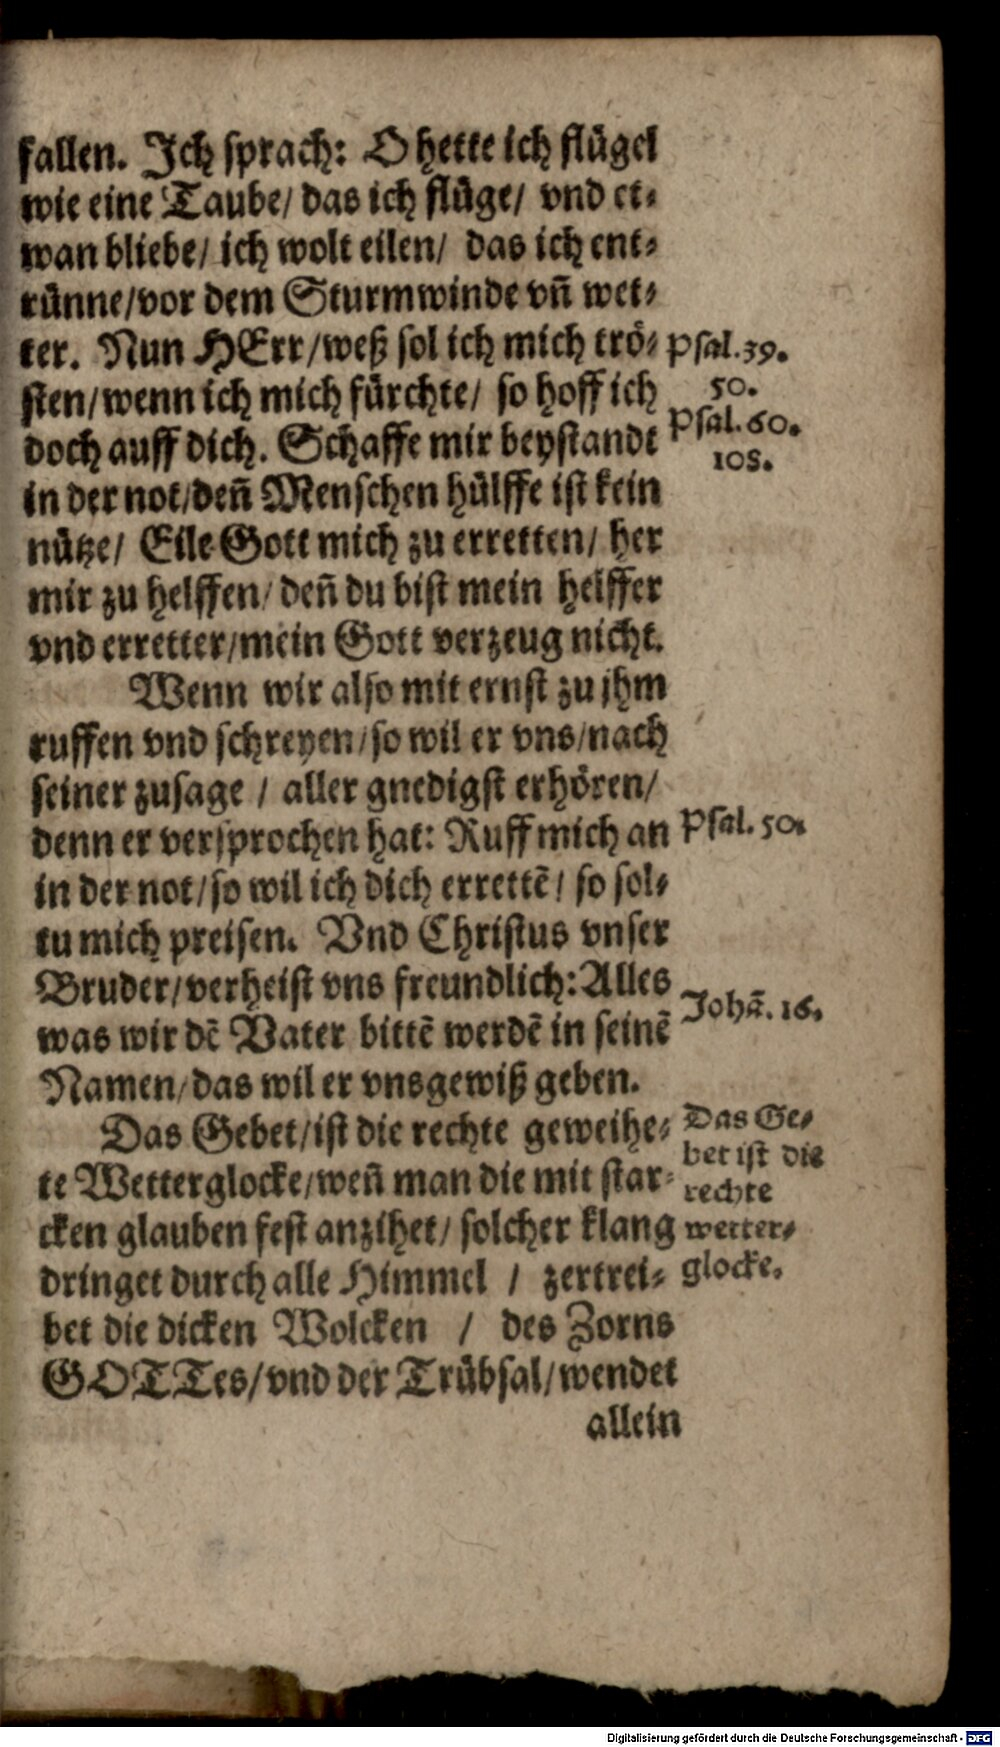 fallen. Ich sprach: O hette ich flügel
wie eine Taube/ das ich flüge/ vnd et-
wan bliebe/ ich wolt eilen/ das ich ent-
rünne/vor dem Sturmwinde vñ wet-
ter. Nun HErr/weß sol ich mich trö-
sten/wenn ich mich fürchte/ so hoff ich
doch auff dich. Schaffe mir beystandt
in der not/deñ Menschen hülffe ist kein
nütze/ Eile Gott mich zu erretten/ her
mir zu helffen/ deñ du bist mein helffer
vnd erretter/mein Gott verzeug nicht.
Psal.39.
50.
Psal.60.
108.
Wenn wir also mit ernst zu jhm
ruffen vnd schreyen/so wil er vns/nach
seiner zusage / aller gnedigst erhören/
denn er versprochen hat: Ruff mich an
in der not/so wil ich dich errettē/ so sol-
tu mich preisen. Vnd Christus vnser
Bruder/verheist vns freundlich: Alles
was wir dē Vater bittē werdē in seinē
Namen/das wil er vns gewiß geben.
Psal. 50.
Johā. 16.
Das Gebet/ist die rechte geweihe-
te Wetterglocke/weñ man die mit star-
cken glauben fest anzihet/ solcher klang
dringet durch alle Himmel / zertrei-
bet die dicken Wolcken / des Zorns
GOTTes/vnd der Trübsal/wendet
allein
Das Ge-
bet ist die
rechte
wetter-
glocke.
Digitalisierung gefördert durch die Deutsche Forschungsgemeinschaft - DFG